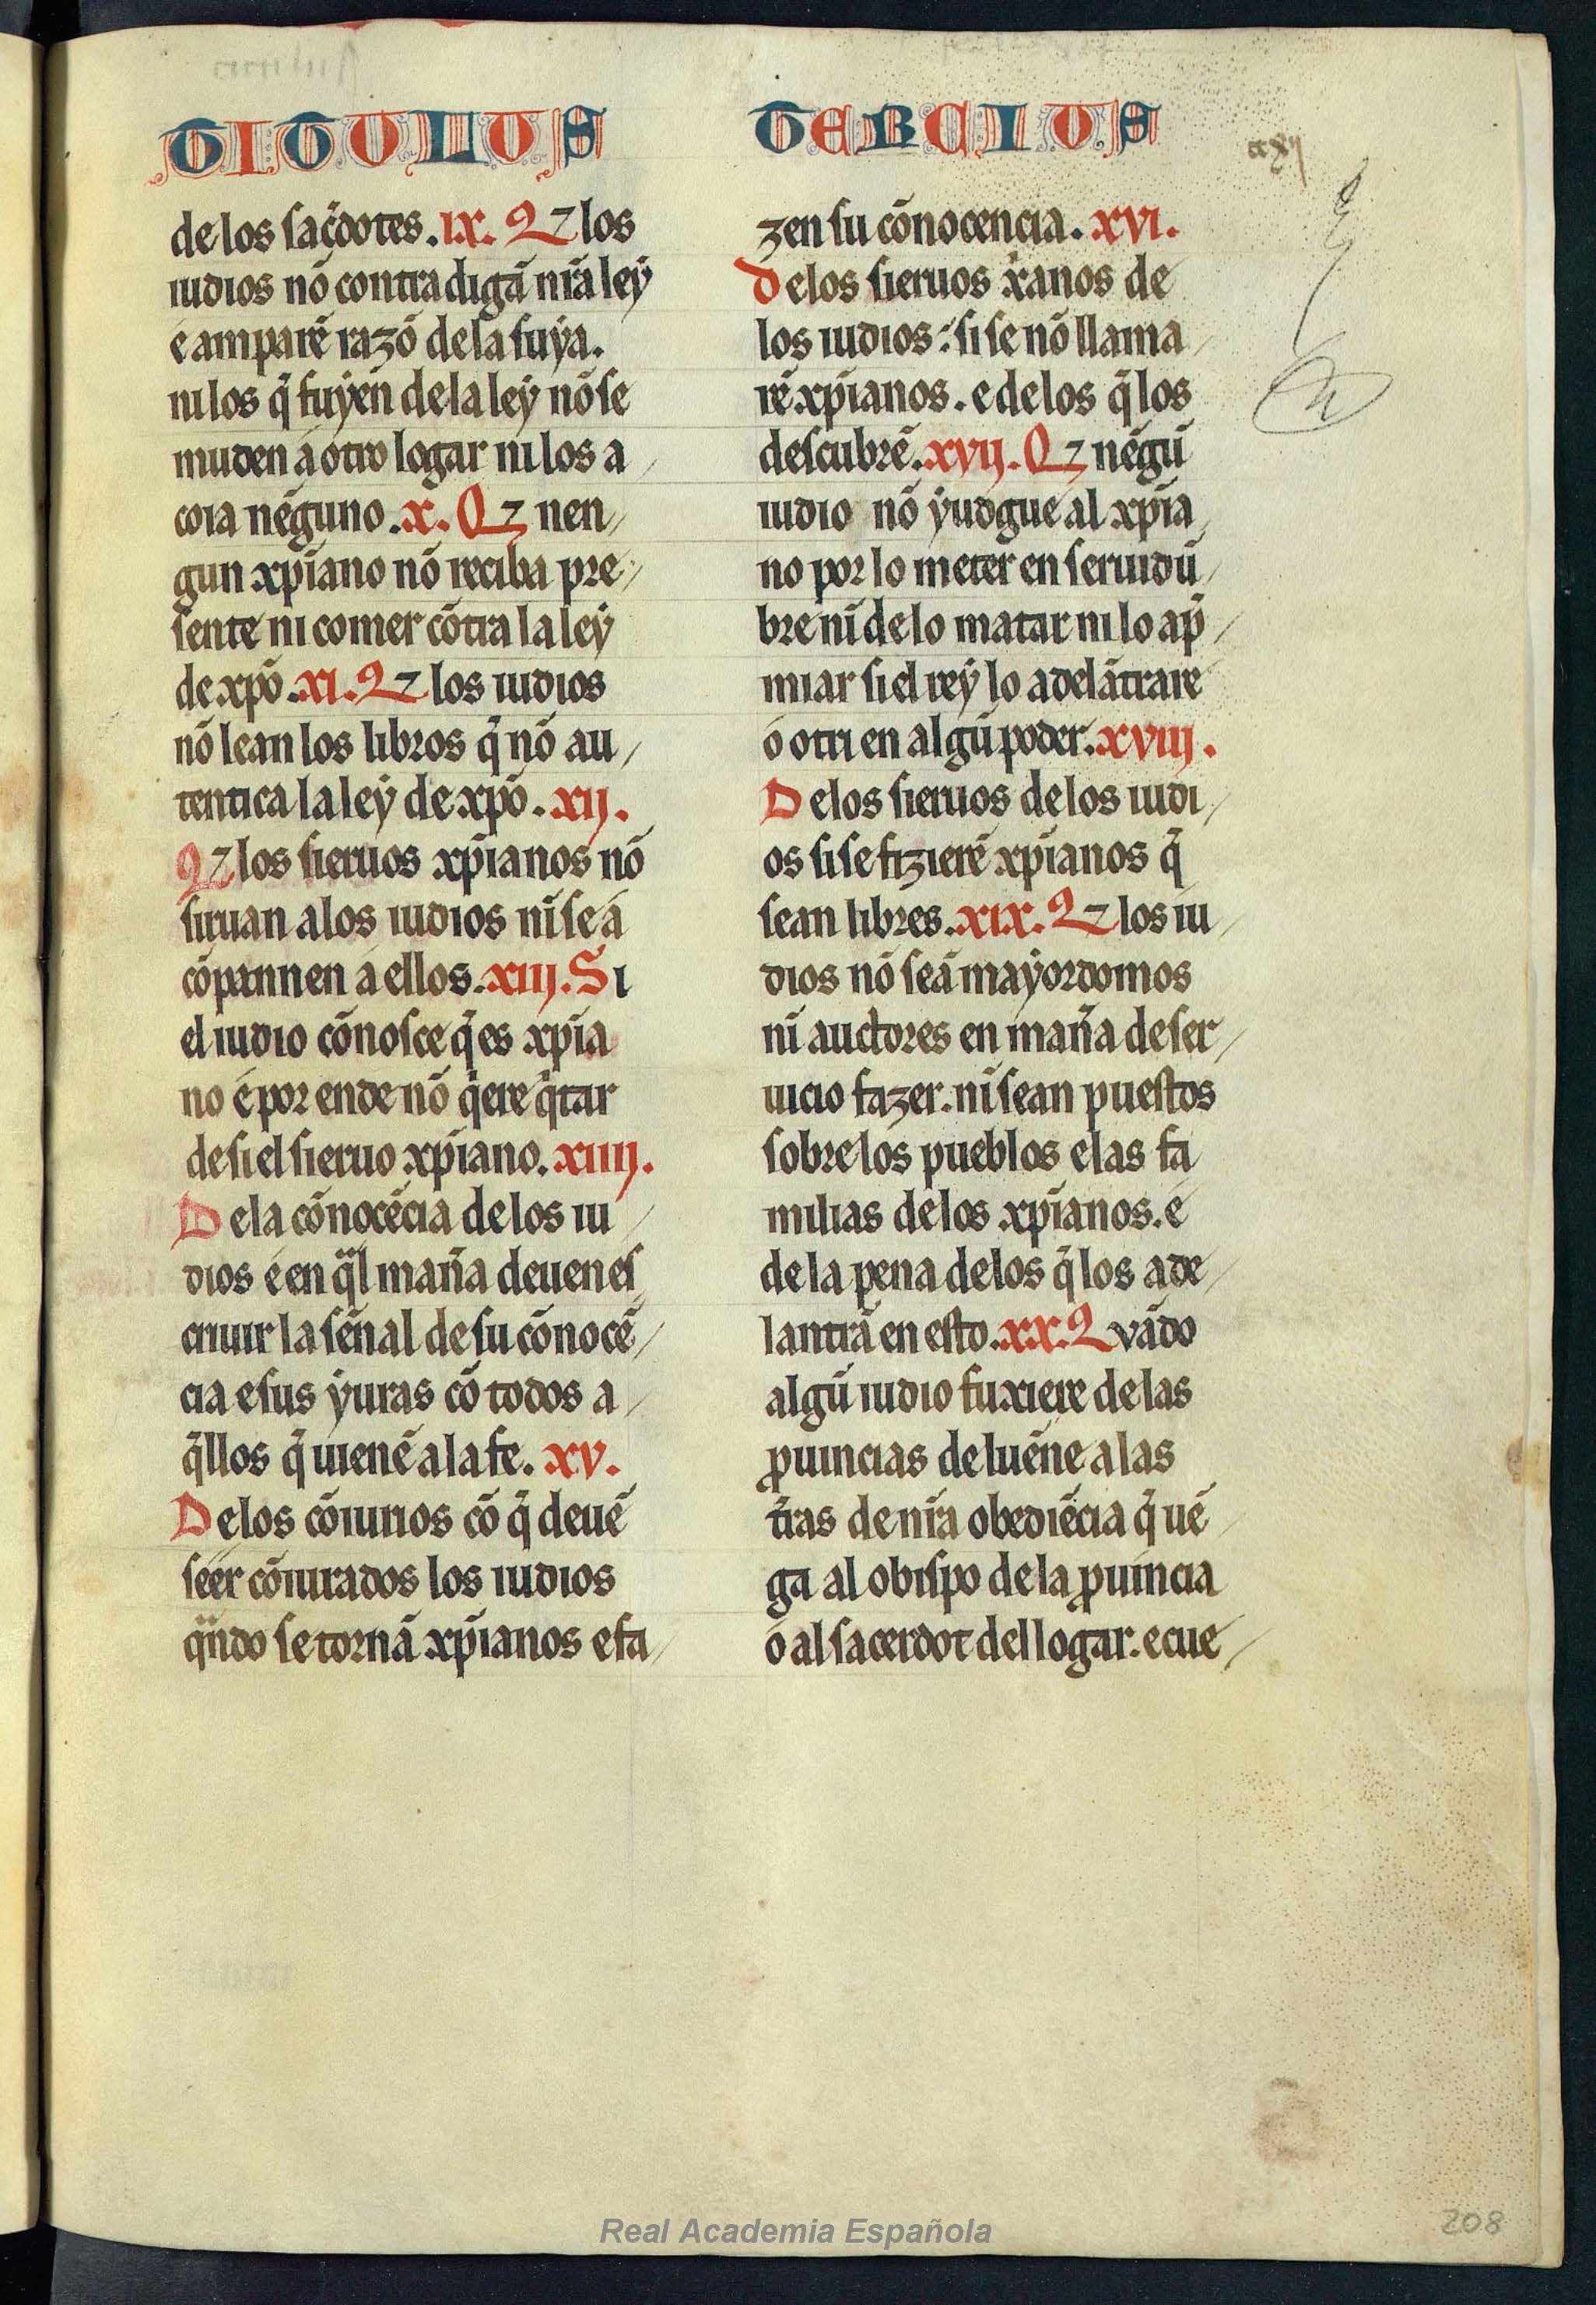 TITULUS
TERCIUS
de los sac̃dotes. IX. Qz los
iudios nõ contradigã nr̃a leẏ
é amparẽ razõ dela suẏa.
ni los q̃ fuẏẽn dela leẏ nõ se
muden á otro logar ni los a
coia nẽguno. X. Qz nen
gun xp̃iano nõ reciba pre
sente ni comer cõtra la leẏ
de xp̃o. XI. Qz los iudios
nõ lean los libros q̃ nõ au
tentica la leẏ de xp̃o. XIJ.
Qz los sieruos xp̃ianos nõ
siruan alos iudios nĩ se á
cõpannen á ellos. XIIJ. Si
el iudio cõnosce q̃ es xp̃ia
no é por ende nõ q̃ere q̃tar
de si el sieruo xp̃iano. XIIIJ.
Dela cõnocẽcia delos iu
dios é en q̃l mañа deuen es
criuir la sẽnal de su cõnocẽ
cia e sus ẏuras cõ todos a
q̃llos q̃ uienẽ ala fe. XV.
Delos cõiurios cõ q̃ deuẽ
seér cõiurados los iudios
q̃ndo se tornã xp̃ianos e fa
zen su cõnocencia. XVI.
Delos sieruos x̃anos de
los iudios: si se nõ llama
rẽ xp̃ianos. e delos q̃ los
descubrẽ. XVIJ. Qz nẽgũ
iudio nõ ẏudgue al xp̃ia
no por lo meter en seruidũ
bre nĩ de lo matar ni lo ap̃
miar si el reẏ lo adelãtrare
ó otri en algũ poder. XVIIJ.
Delos sieruos delos iudi
os si se fizierẽ xp̃ianos q̃
sean libres. XIX. Qz los iu
dios nõ seã maẏordomos
nĩ auctores en mañа de ser
uicio fazer. nĩ sean puestos
sobre los pueblos e las fa
milias delos xp̃ianos. é
dela pena delos q̃ los ade
lantrã en esto. XX. Quãdo
algũ iudio fuxiere delas
ꝓuincias de luẽne alas
tr̃as de nr̃a obediẽcia q̃ uẽ
ga al obispo dela ꝓuincia
ó al sacerdot del logar. e cue
208
Real Academia Española